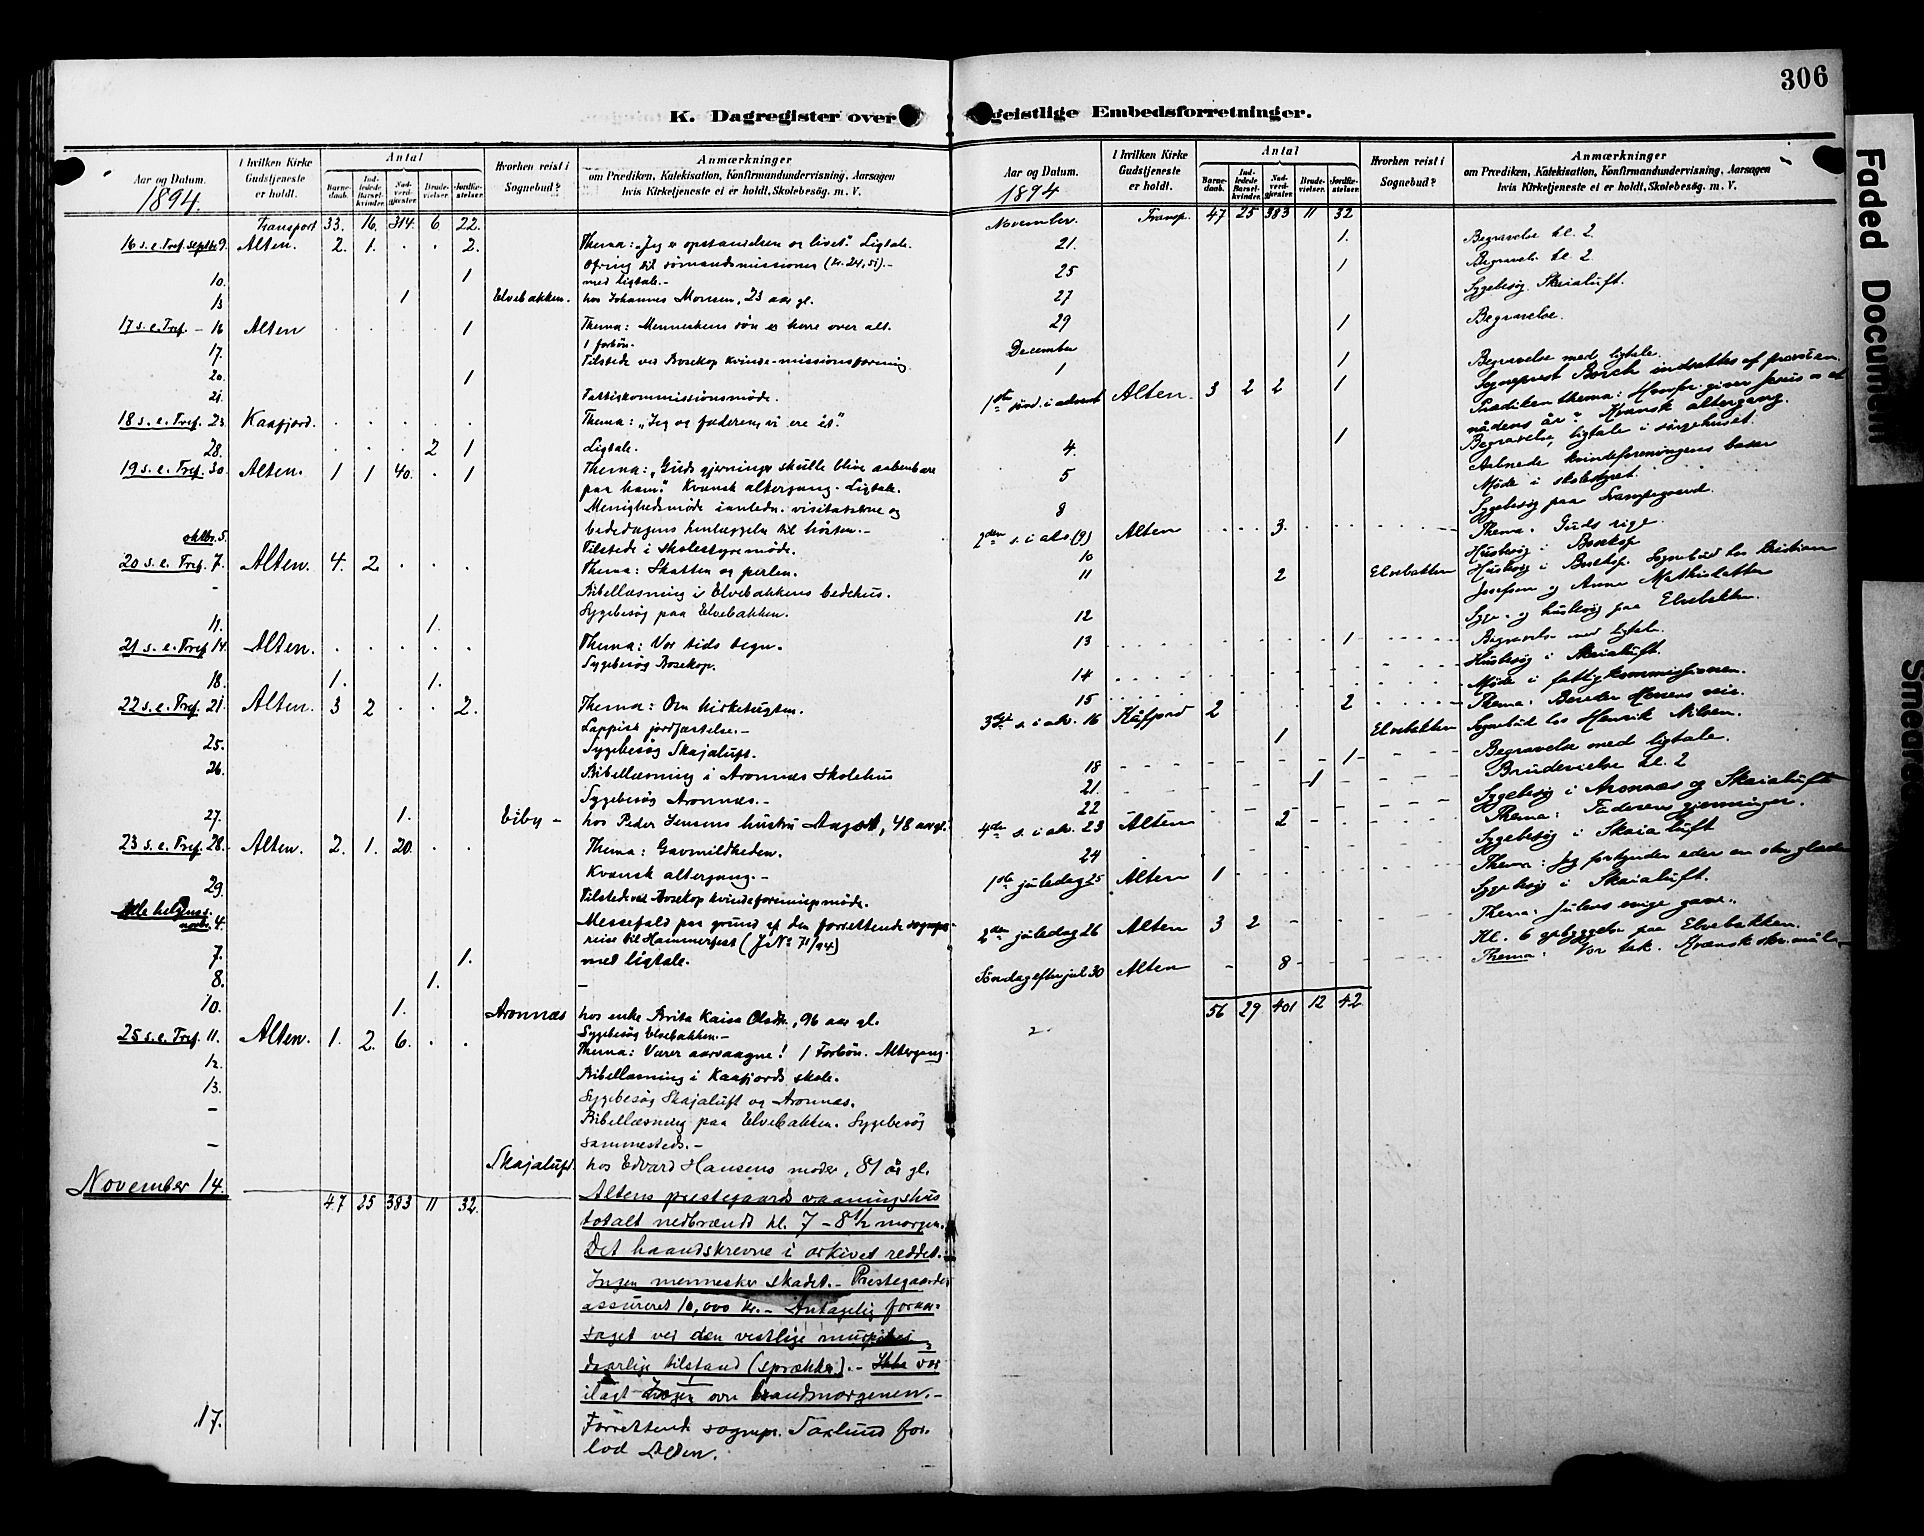 306
K. Dagregister over geistlige Embedsforretninger.
Aar og Datum.
1894.
I hvilken Kirke Gudstjeneste er holdt.
Antal
Barnedaab.
Indledede Barselkvinder.
Nadverdgjester.
Brudevielser.
Jordfæstelser.
Hvorhen reist i Sognebud?
Anmærkninger
om Prædiken, Katekisation, Konfirmandundervisning, Aarsagen
hvis Kirketjeneste ei er holdt, Skolebesög. m. V.
Transport 33. 16. 314. 6 22.
16 s. e. Tref. septbr 9. Alten. 2. 1. . . 2. Thema: „Jeg er opstandelsen og livet". Ligtale.
Ofring til sømandsmissionen (Kr. 24,51).-
10. 1 med ligtale.-
13 1 Elvebakken. hos Johannes Monsen, 23 aar gl.
17 s. e. Tref. - 16 Alten . . . . 1 Thema: Menneskens søn er herre over alt.
1 forbön.
17. Tilstede ved Bosekop kvinde-missionsforening
20. 1
21. Fattigkommissionsmöde.
18 s. e. Tref. 23 Kaafjord. . . . . . Thema: „Jeg og faderen, vi ere ét".
28. . . . 2 1 Ligtale.
19 s. e. Tref. 30. Alten. 1 1 40. . 1 Thema: „Guds gjerninger skulle blive aabenbare
paa ham". Kvænsk altergang. Ligtale.
Menighedsmöde i anledn. visitatserne og
bededagens henlæggelse til hösten.-
oktbr. 5. Tilstede i Skolestyremöde.
20 s. e. Tref. 7. Alten. 4. 2 . . . Thema: Skatten og perlen.
- Bibellæsning i Elvebakkens bedehus.
Sygebesög paa Elvebakken.
11. 1.
21 s. e. Tref. 14. Alten. . . . . . Thema: Vor tids tegn.
Sygebesög Bosekop.
18. 1. 1.
22 s. e. Tref. 21. Alten. 3 2 . . 2. Thema: Om kirketugten.
Lappisk jordfæstelse.-
25. Sygebesög Skajaluft.
26. Bibellæsning i Aronnæs Skolehus
Sygebesög Aronnæs.-
27. 1. Eiby - hos Peder Jensens hustru, 48 aar gl.
23 s. e. Tref. 28. Alten. 2. 1. 20. . . Thema: Gavmildheden.
Kvænsk altergang.-
29. Tilstede ved Bosekop kvindeforenings möde.
Alle helgens s. novbr. 4. Messefald paa grund af den forrettende sogneprs
reise til Hammerfest (J. No 71/94)
7. 1. med ligtale.
8. 1. -
10. 1. Aronnæs hos enke Brita Kaisa Olsdtr., 96 aar gl.
Sygebesög Elvebakken.-
25 s. e. Tref. 11. Alten. 1. 2. 6. . . Thema: Værer aarvaagne! 1 Forbön. Altergang.
12. Bibellæsning i Kaafjords skole.
13. Sygebesög Skajaluft og Aronnæs.
- Bibellæsning paa Elvebakken. Sygebesög
sammesteds.-
- Skajaluft. hos Edvard Hansens moder, 81 år gl.
November 14. 47 25 383 11 32. Altens prestegaards vaaningshus
totalt nedbrændt kl. 7 - 8 1/2 morgen.
Det haandskrevne i arkivet reddet.
Ingen mennesker skadet.- Prestegaarden
assureret 10,000 kr.- Antagelig foraar-
saget ved den vestlige
daarlige tilstand (sprækker).- Ikke var
ilagt ovn brandmorgenen.-
17. Forrettende sognepr. Saxlund for-
lod Alten.
Aar og Datum.
1894
I hvilken Kirke Gudstjeneste er holdt.
Antal
Barnedaab.
Indledede Barselkvinder.
Nadverdgjester.
Brudevielser.
Jordfæstelser.
Hvorhen reist i Sognebud?
Anmærkninger
om Prædiken, Katekisation, Konfirmandundervisning, Aarsagen
hvis Kirketjeneste ei er holdt, Skolebesög. m. V.
November. Transp. 47 25 383 11 32
21. 1. Begravelse kl. 2.
25 1 Begravels. kl. 2
27 Sygebesög. Skaialuft.
29 1 Begravelse.
December
1 1 Begravelse med ligtale.
Sogneprest Borch indsattes af provsten.
1ste sönd. i advent Alten. 3 2 2 1 Prædikenthema:
nådens år". Kvænsk altergang.
4. 1 Begravelse, ligtale i sörgehuset.
Aabnede kvindeforeningens basar
5 Möde i skolestyret.
8 Sygebesög paa
2den s. i adv (9) Alten 3. Thema. Guds rige.
10 Husbesög i Bosekop
11 2 Elvebakken Husbesög i Bosekop. Sognebud hos Kristian
Josefsen og Anna
12 Syge- og husbesög paa Elvebakken.
13 1 Begravelse med ligtale.
Husbesög i Skaialuft.
14 Möde i fattigkommissionen.
15 2
3dje s. i adv. 16 Kåfjord 2 Thema: Bereder Herrens vei.
1 Elvebakken Sognebud hos Henrik Nilsen.
18 1 Begravelse med ligtale.
21. 1 Brudevielse kl. 2
22 Sygebesög i Aronnæs og Skaialuft
4de s. i adv. 23 Alten 2 Thema: Faderens gjerninger.
24 Sygebesög i Skaialuft
1ste juledag 25 Alten 1 Thema: Jeg forkynder eder en stor glæde
Sygebesög i Skaialuft.
2den juledag 26 Alten 3 2 Thema: Julens evige gave.
Kl. 6 opbyggelse paa Elvebakken.
Söndag efter jul 30 Alten 8 Thema: Vor tak. Kvænsk
56 29 401 12 42
Faded Document
Smeared